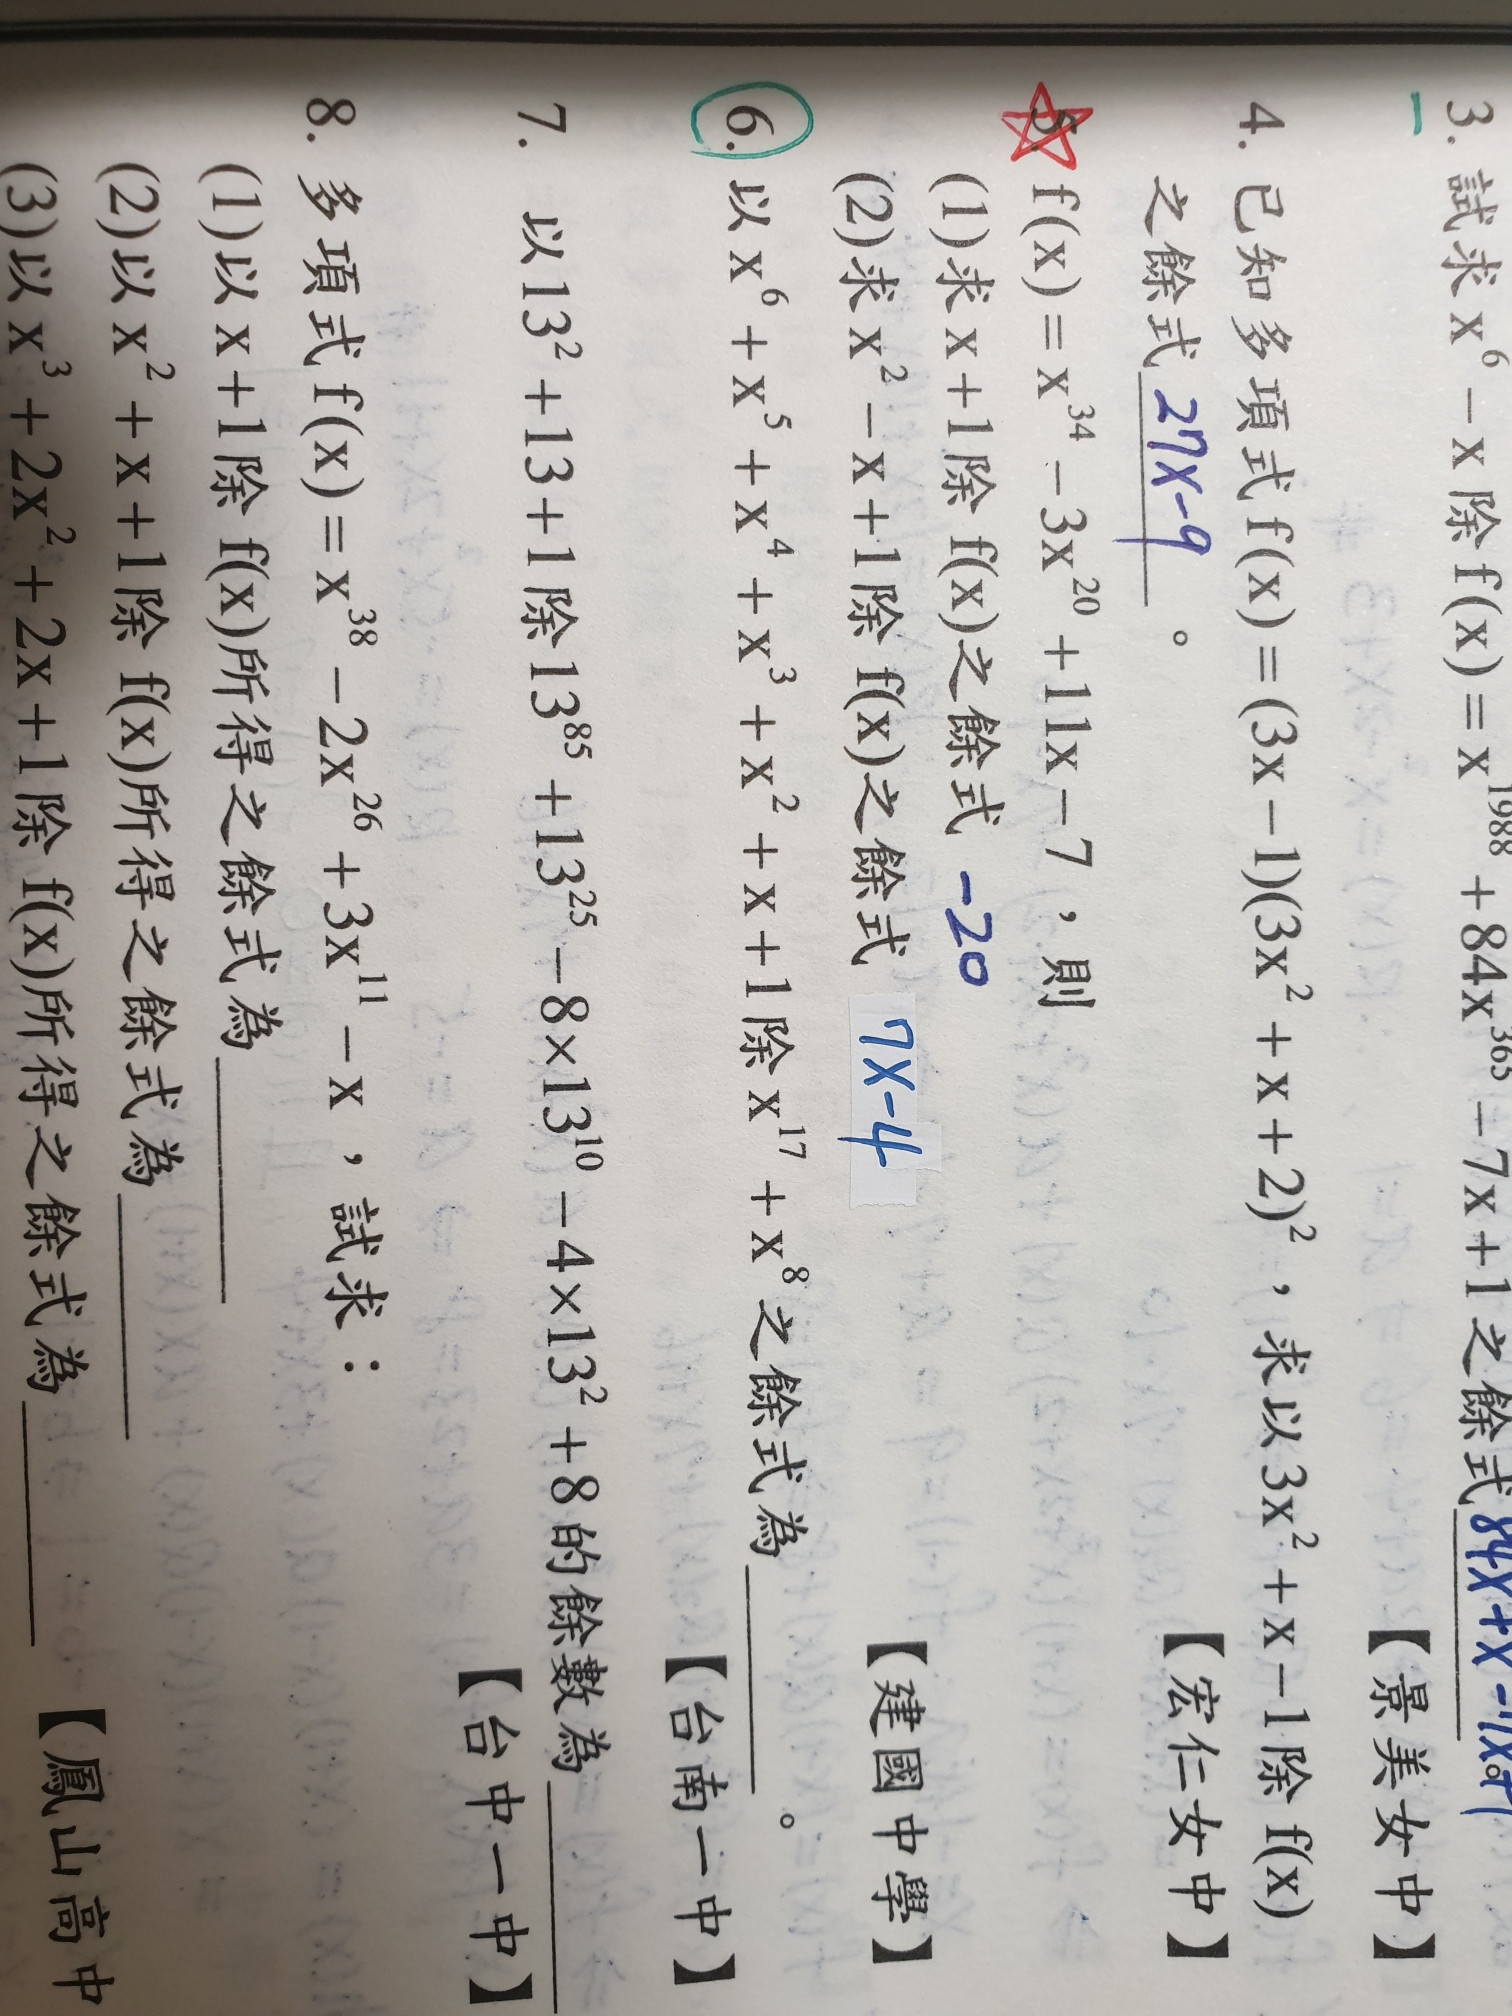 3. 試求 x⁶ − x 除 f(x) = x¹⁹⁸⁸ + 84x³⁶⁵ − 7x + 1 之餘式
【景美女中】
4. 已知多項式 f(x) = (3x − 1)(3x² + x + 2)²，求以 3x² + x − 1 除 f(x)
之餘式 27x-9 。 【宏仁女中】
5. f(x) = x³⁴ − 3x²⁰ + 11x − 7，則
(1)求 x + 1 除 f(x)之餘式 -20
(2)求 x² − x + 1 除 f(x)之餘式 7x-4 【建國中學】
6. 以 x⁶ + x⁵ + x⁴ + x³ + x² + x + 1 除 x¹⁷ + x⁸ 之餘式為______。
【台南一中】
7. 以 13² + 13 + 1 除 13⁸⁵ + 13²⁵ − 8×13¹⁰ − 4×13² + 8 的餘數為______
【台中一中】
8. 多項式 f(x) = x³⁸ − 2x²⁶ + 3x¹¹ − x，試求：
(1)以 x + 1 除 f(x)所得之餘式為______
(2)以 x² + x + 1 除 f(x)所得之餘式為______
(3)以 x³ + 2x² + 2x + 1 除 f(x)所得之餘式為______ 【鳳山高中